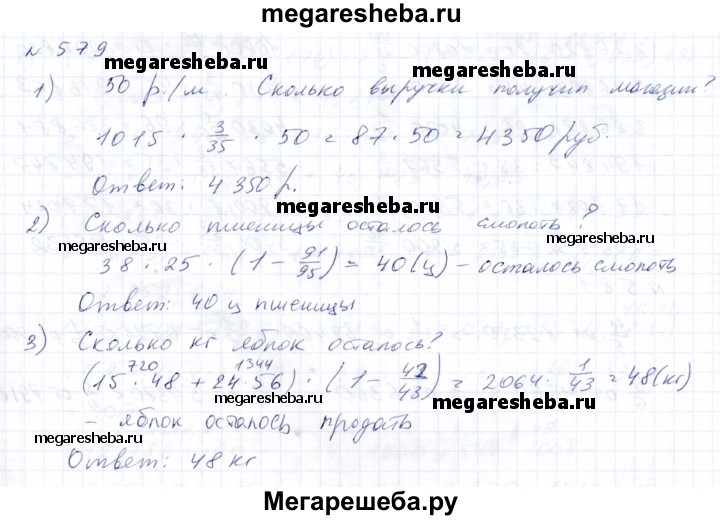 megaresheba.ru
№ 579
megaresheba.ru
megaresheba.ru
1) 50 р./м. Сколько выручки получил магазин?
1015 · 3/35 · 50 = 87 · 50 = 4350 руб.
Ответ: 4350 р.
megaresheba.ru
2) Сколько пшеницы осталось смолоть?
megaresheba.ru
megaresheba.ru
38 · 25 · (1 - 91/95) = 40 (ц) - осталось смолоть
Ответ: 40 ц пшеницы
3) Сколько кг яблок осталось?
720 1344
(15 · 48 + 24 · 56) · (1 - 42/43) = 2064 · 1/43 = 48 (кг)
megaresheba.ru
megaresheba.ru
- яблок осталось продать
megaresheba.ru
Ответ: 48 кг
Мегарешеба.ру